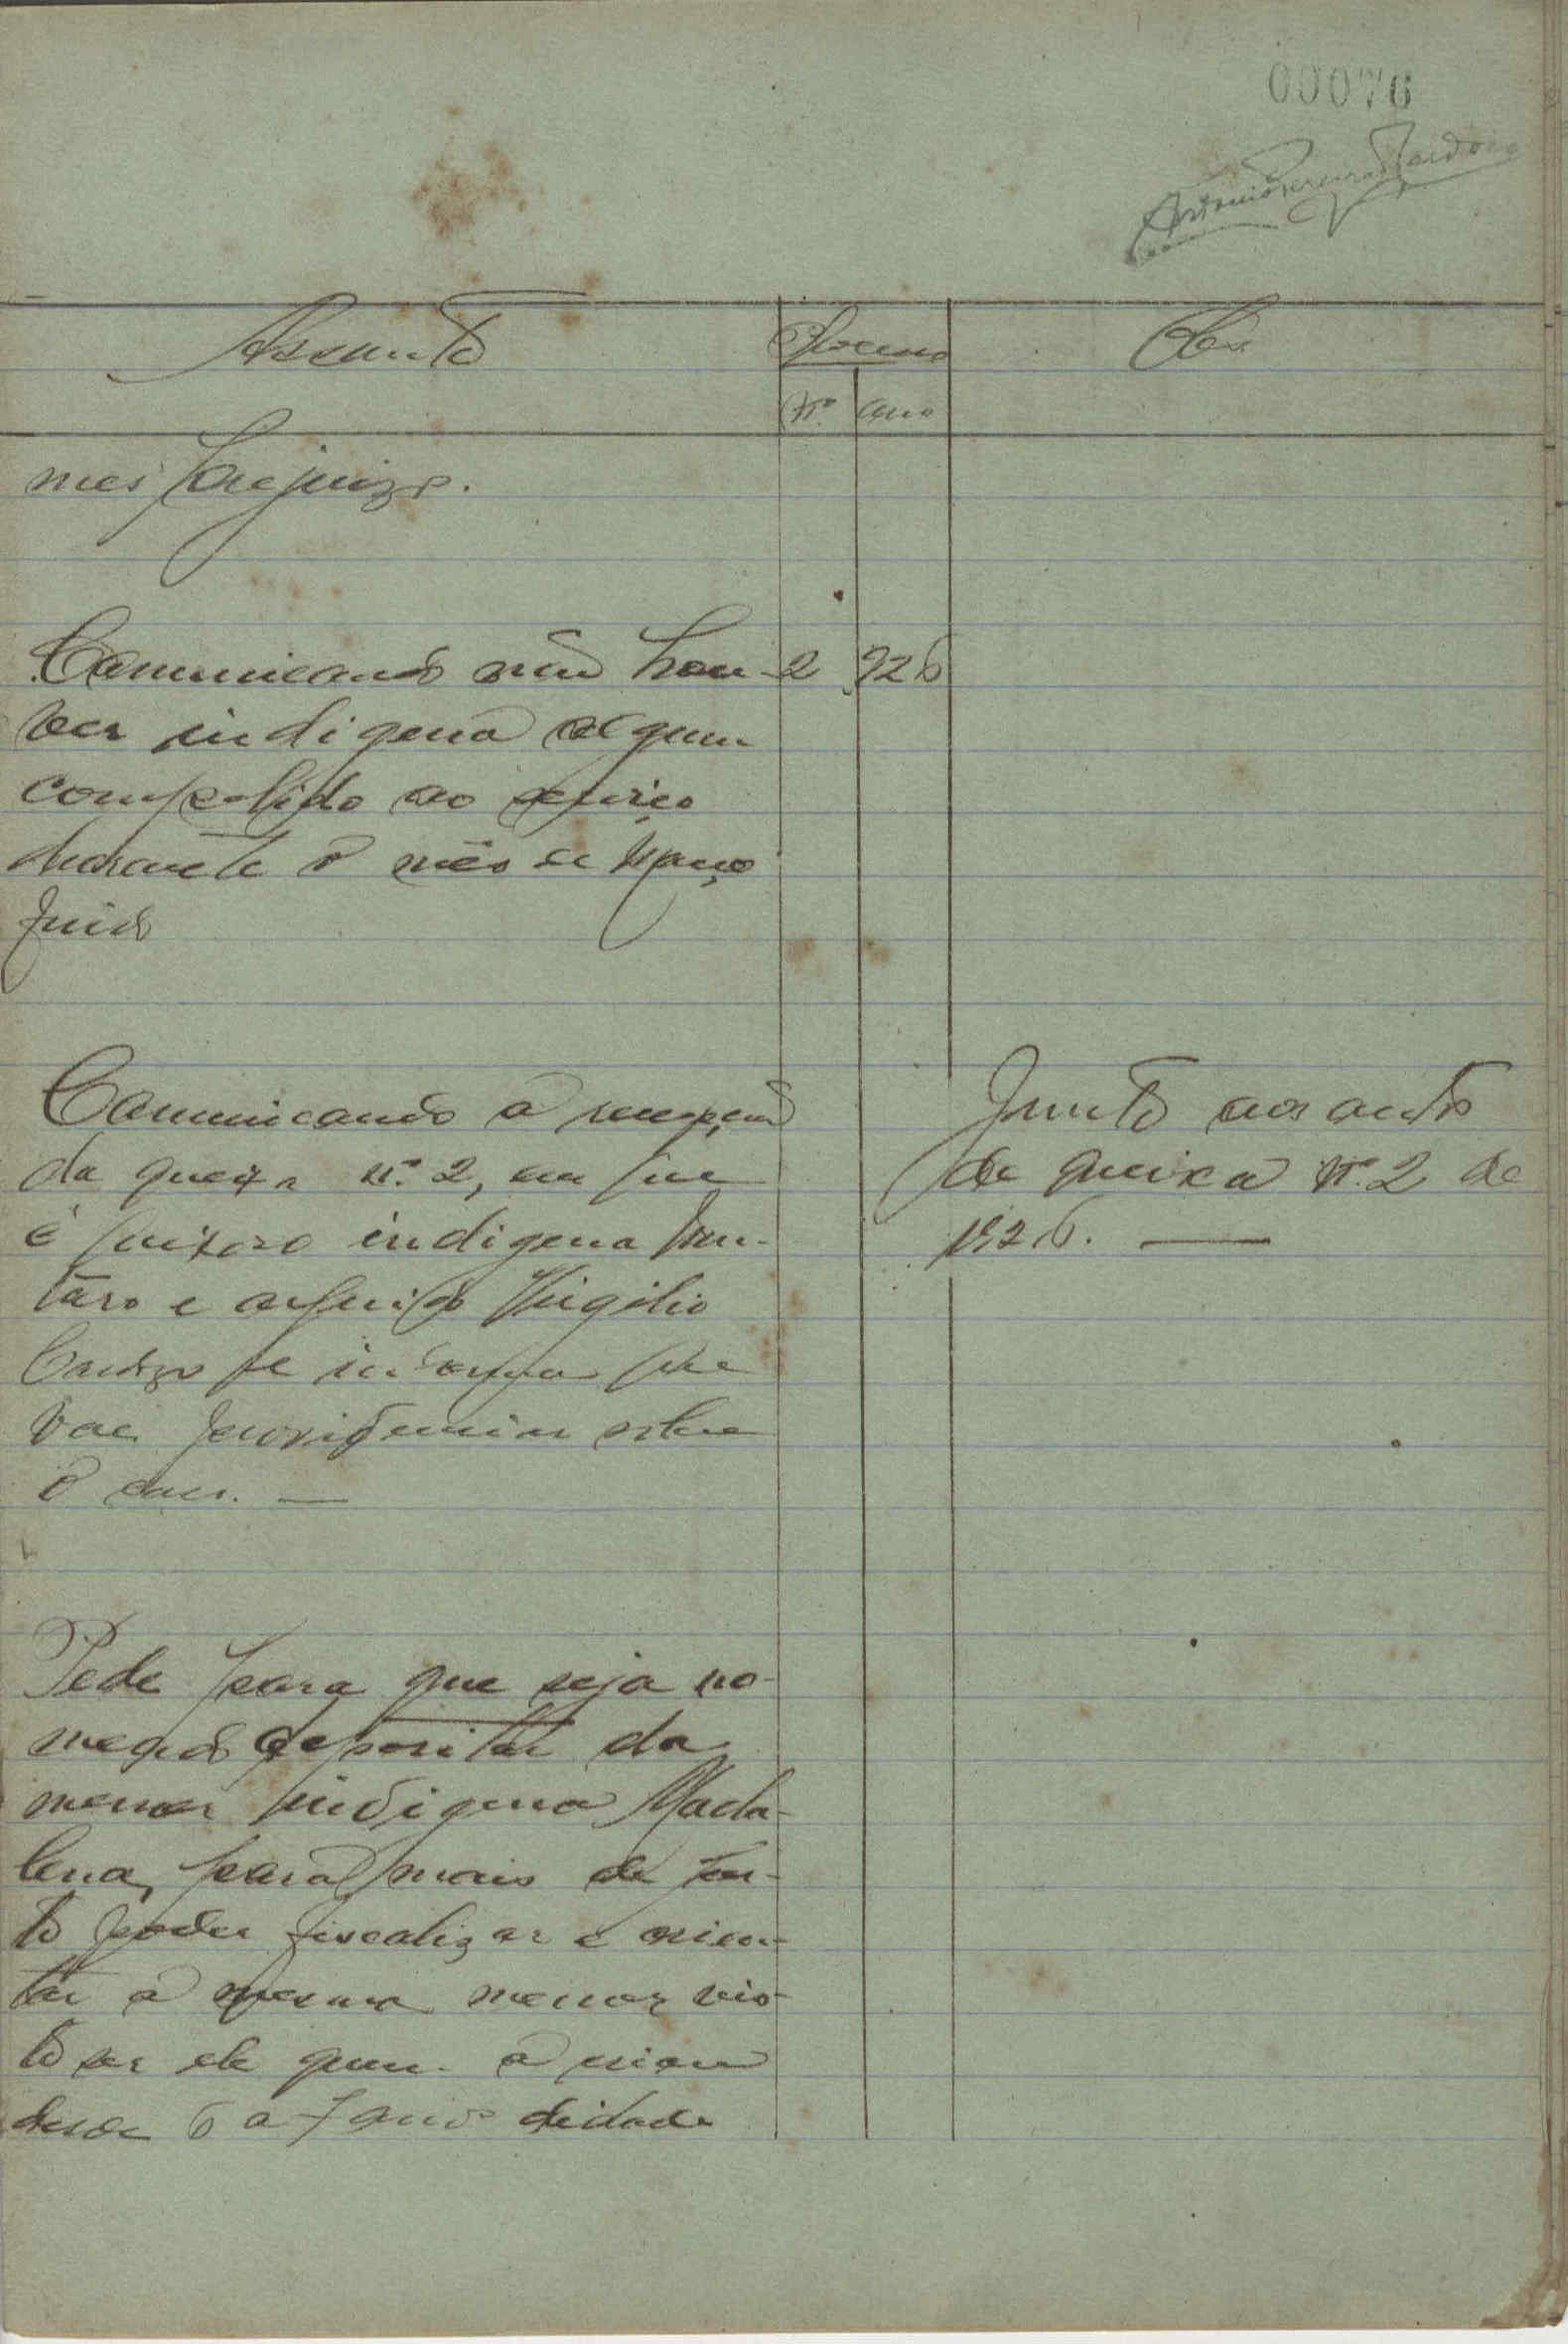 00076
Antonio Pereira Cardoso
Assunto
Processo
Obs
Nº
Ano
mes prejuizo.
Comunicando não hou-
ver indigena algum
compelido ao serviço
durante o mês de Março
findo
2 926
Comunicando a recepção
da queixa nº 2, em que
é queixoso indigena
e arguido Virgilio
que
vae providenciar sobre
o caso. —
Junto aos autos
de queixa Nº 2 de
1926. —
Pede para que seja no-
meado depositar da
menor indigena Mada-
lena, para mais de per-
to poder fiscalizar e orien-
tar a mesma menor vis-
to ser ele quem a criou
desde 6 a 7 anos didade